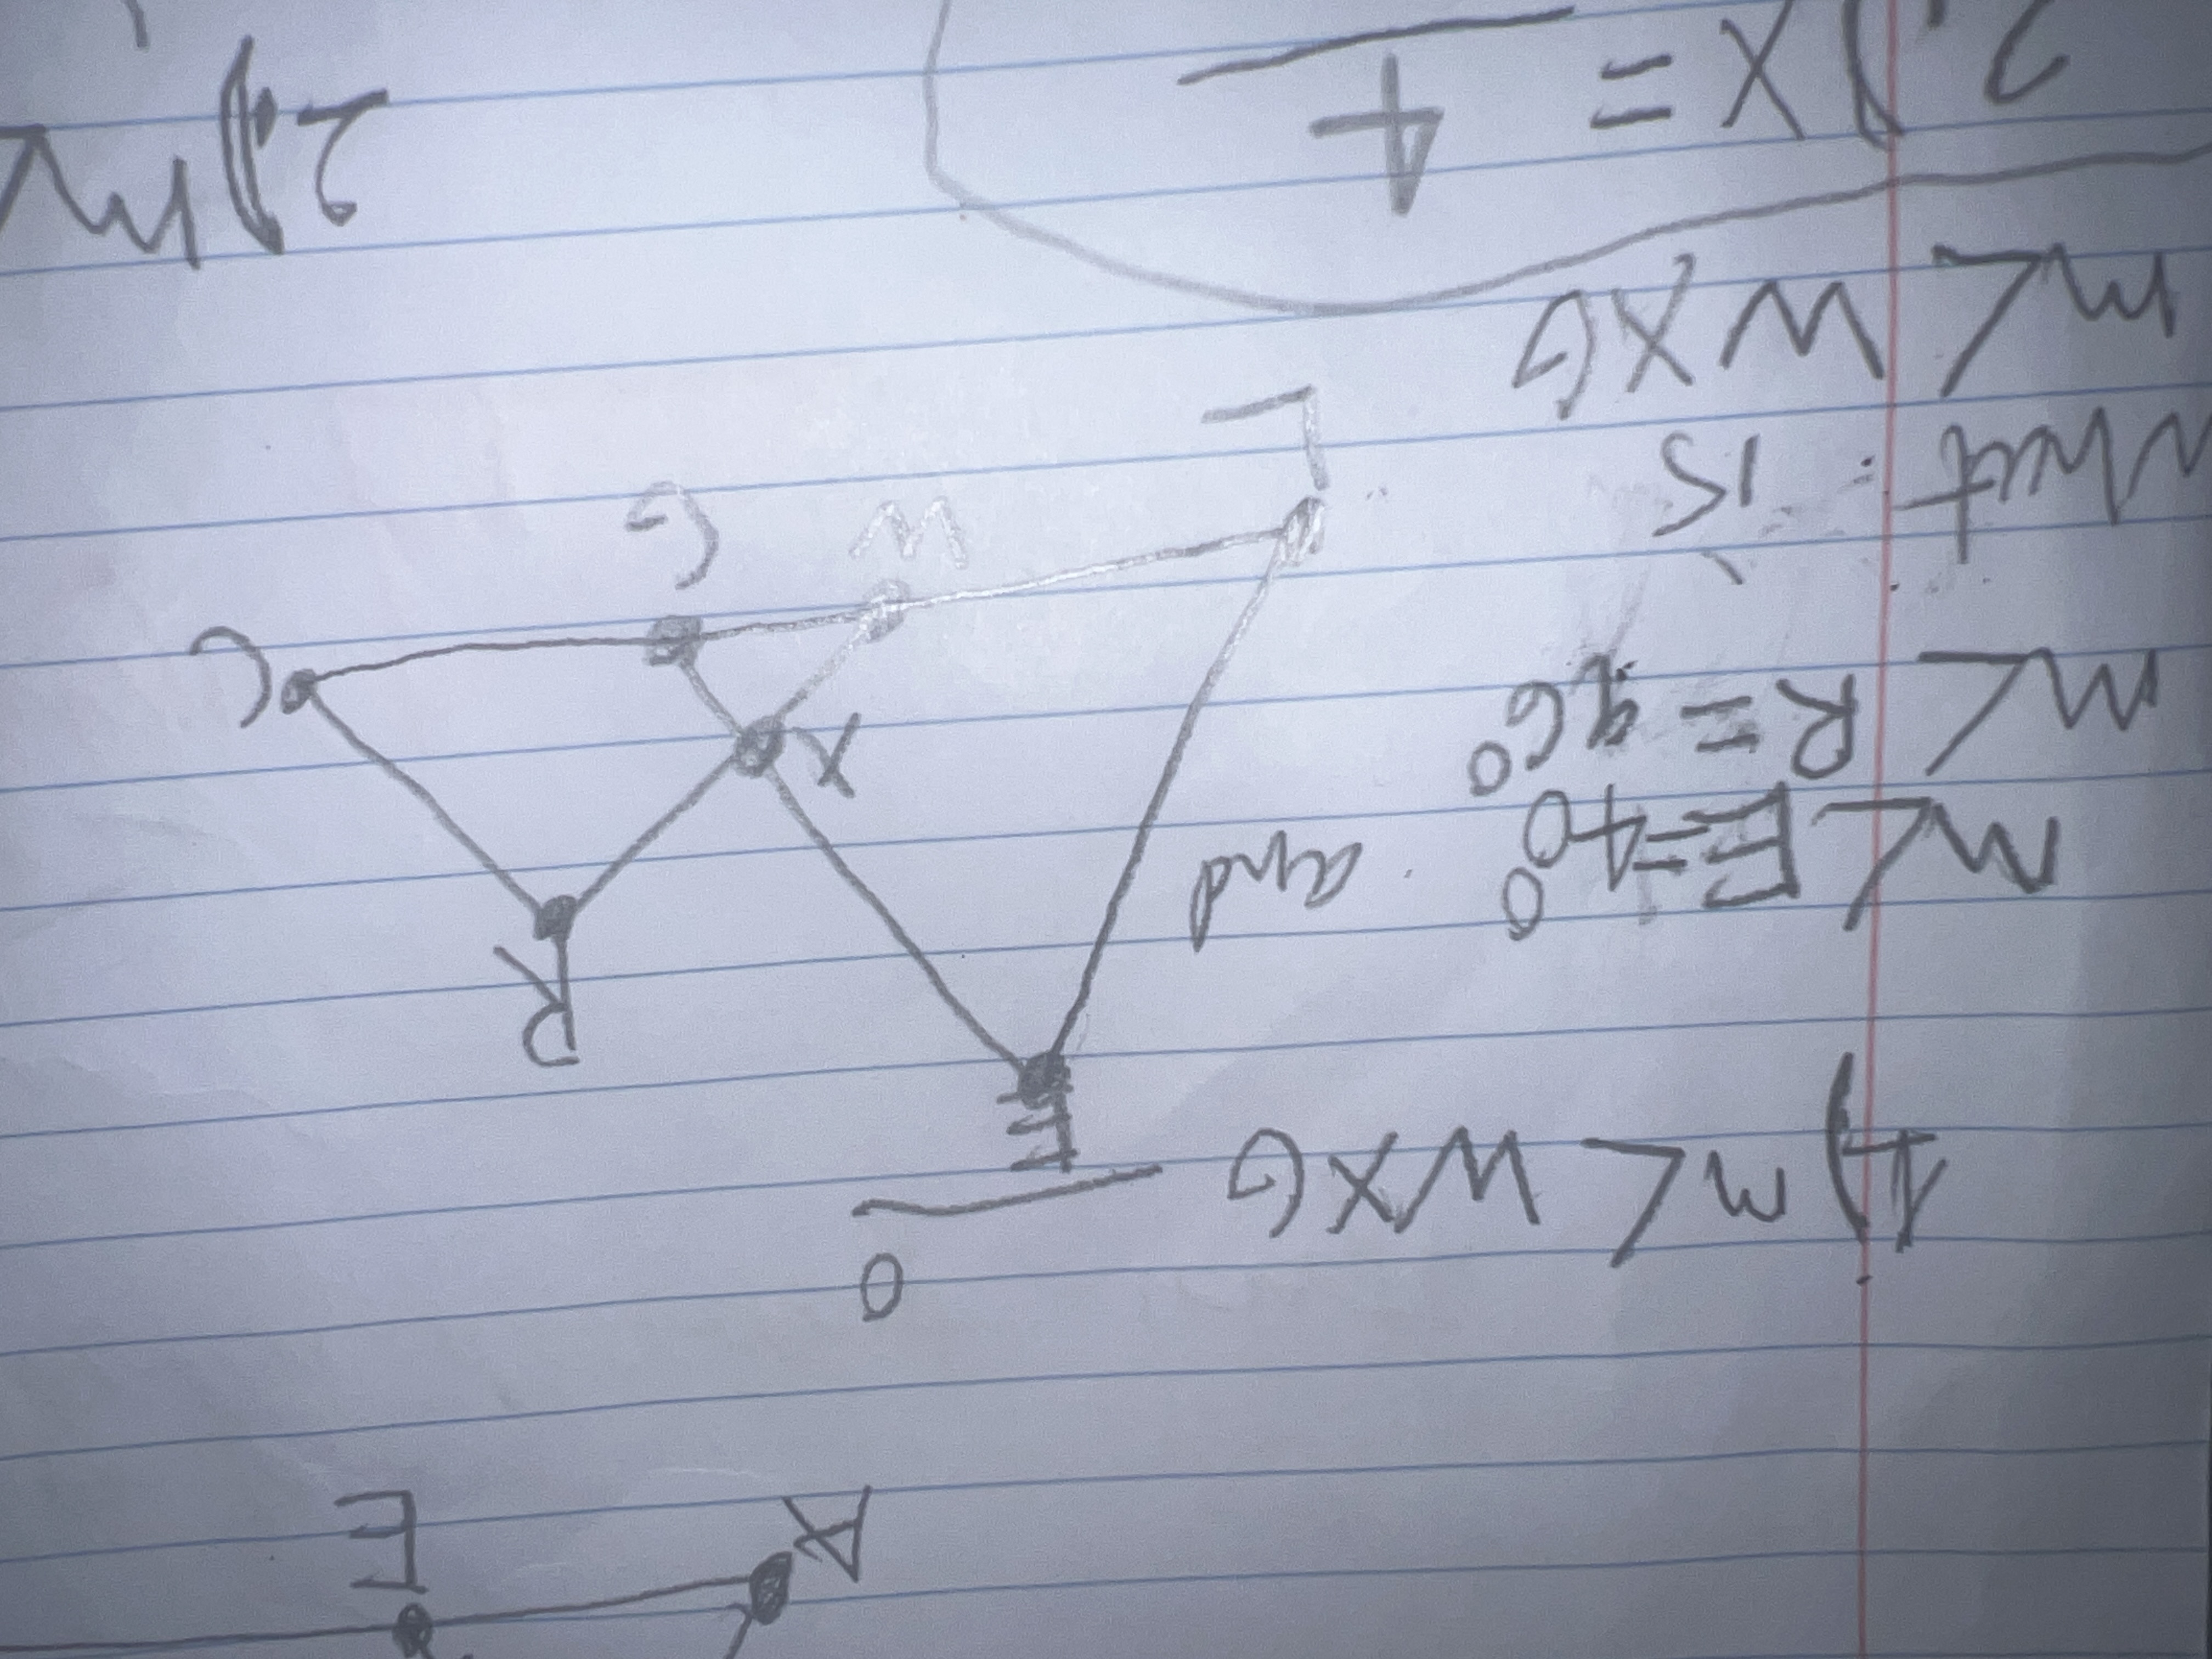 A
E
1) m< WXG ____ °
E
R
m< E=40° and
m< R = 96°
X
C
What is
L
W
G
m< WXG
2.) X = 4
2.) m